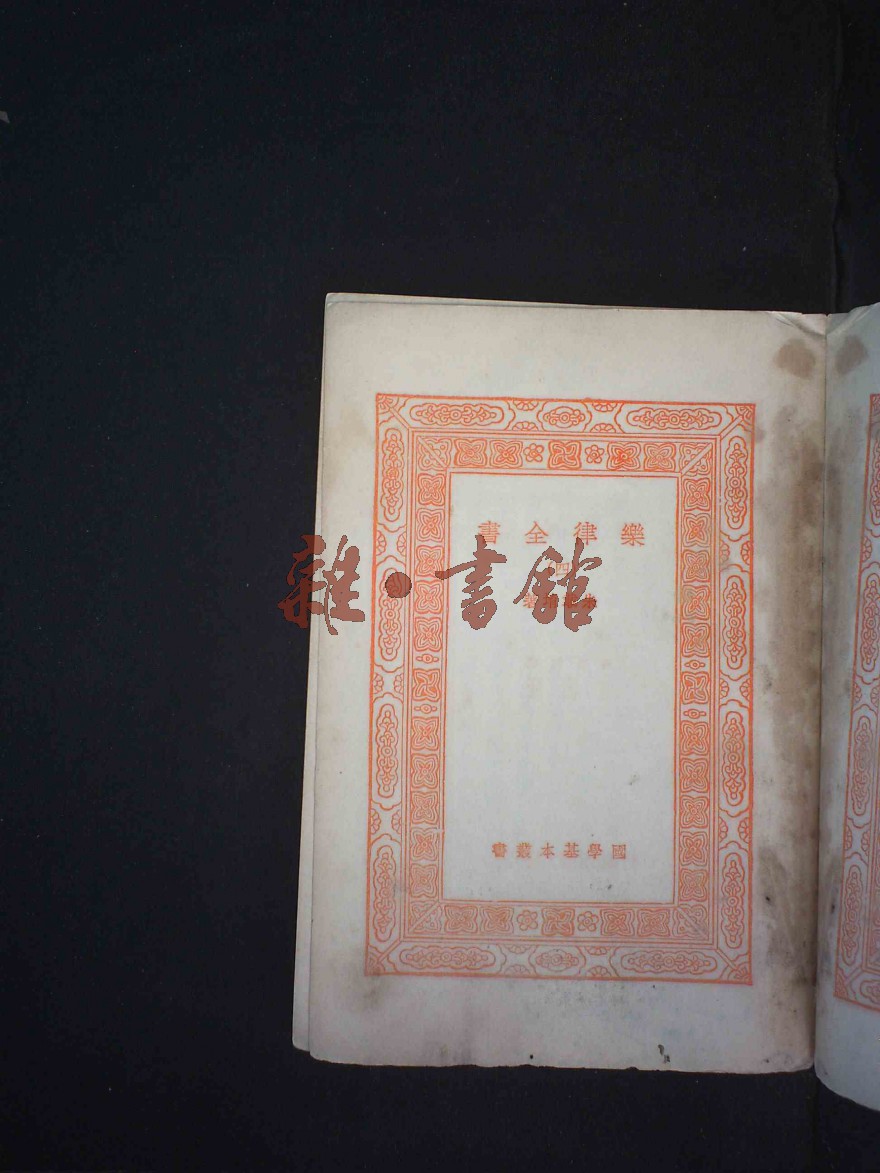 樂律全書
四
雜·書館
國學基本叢書